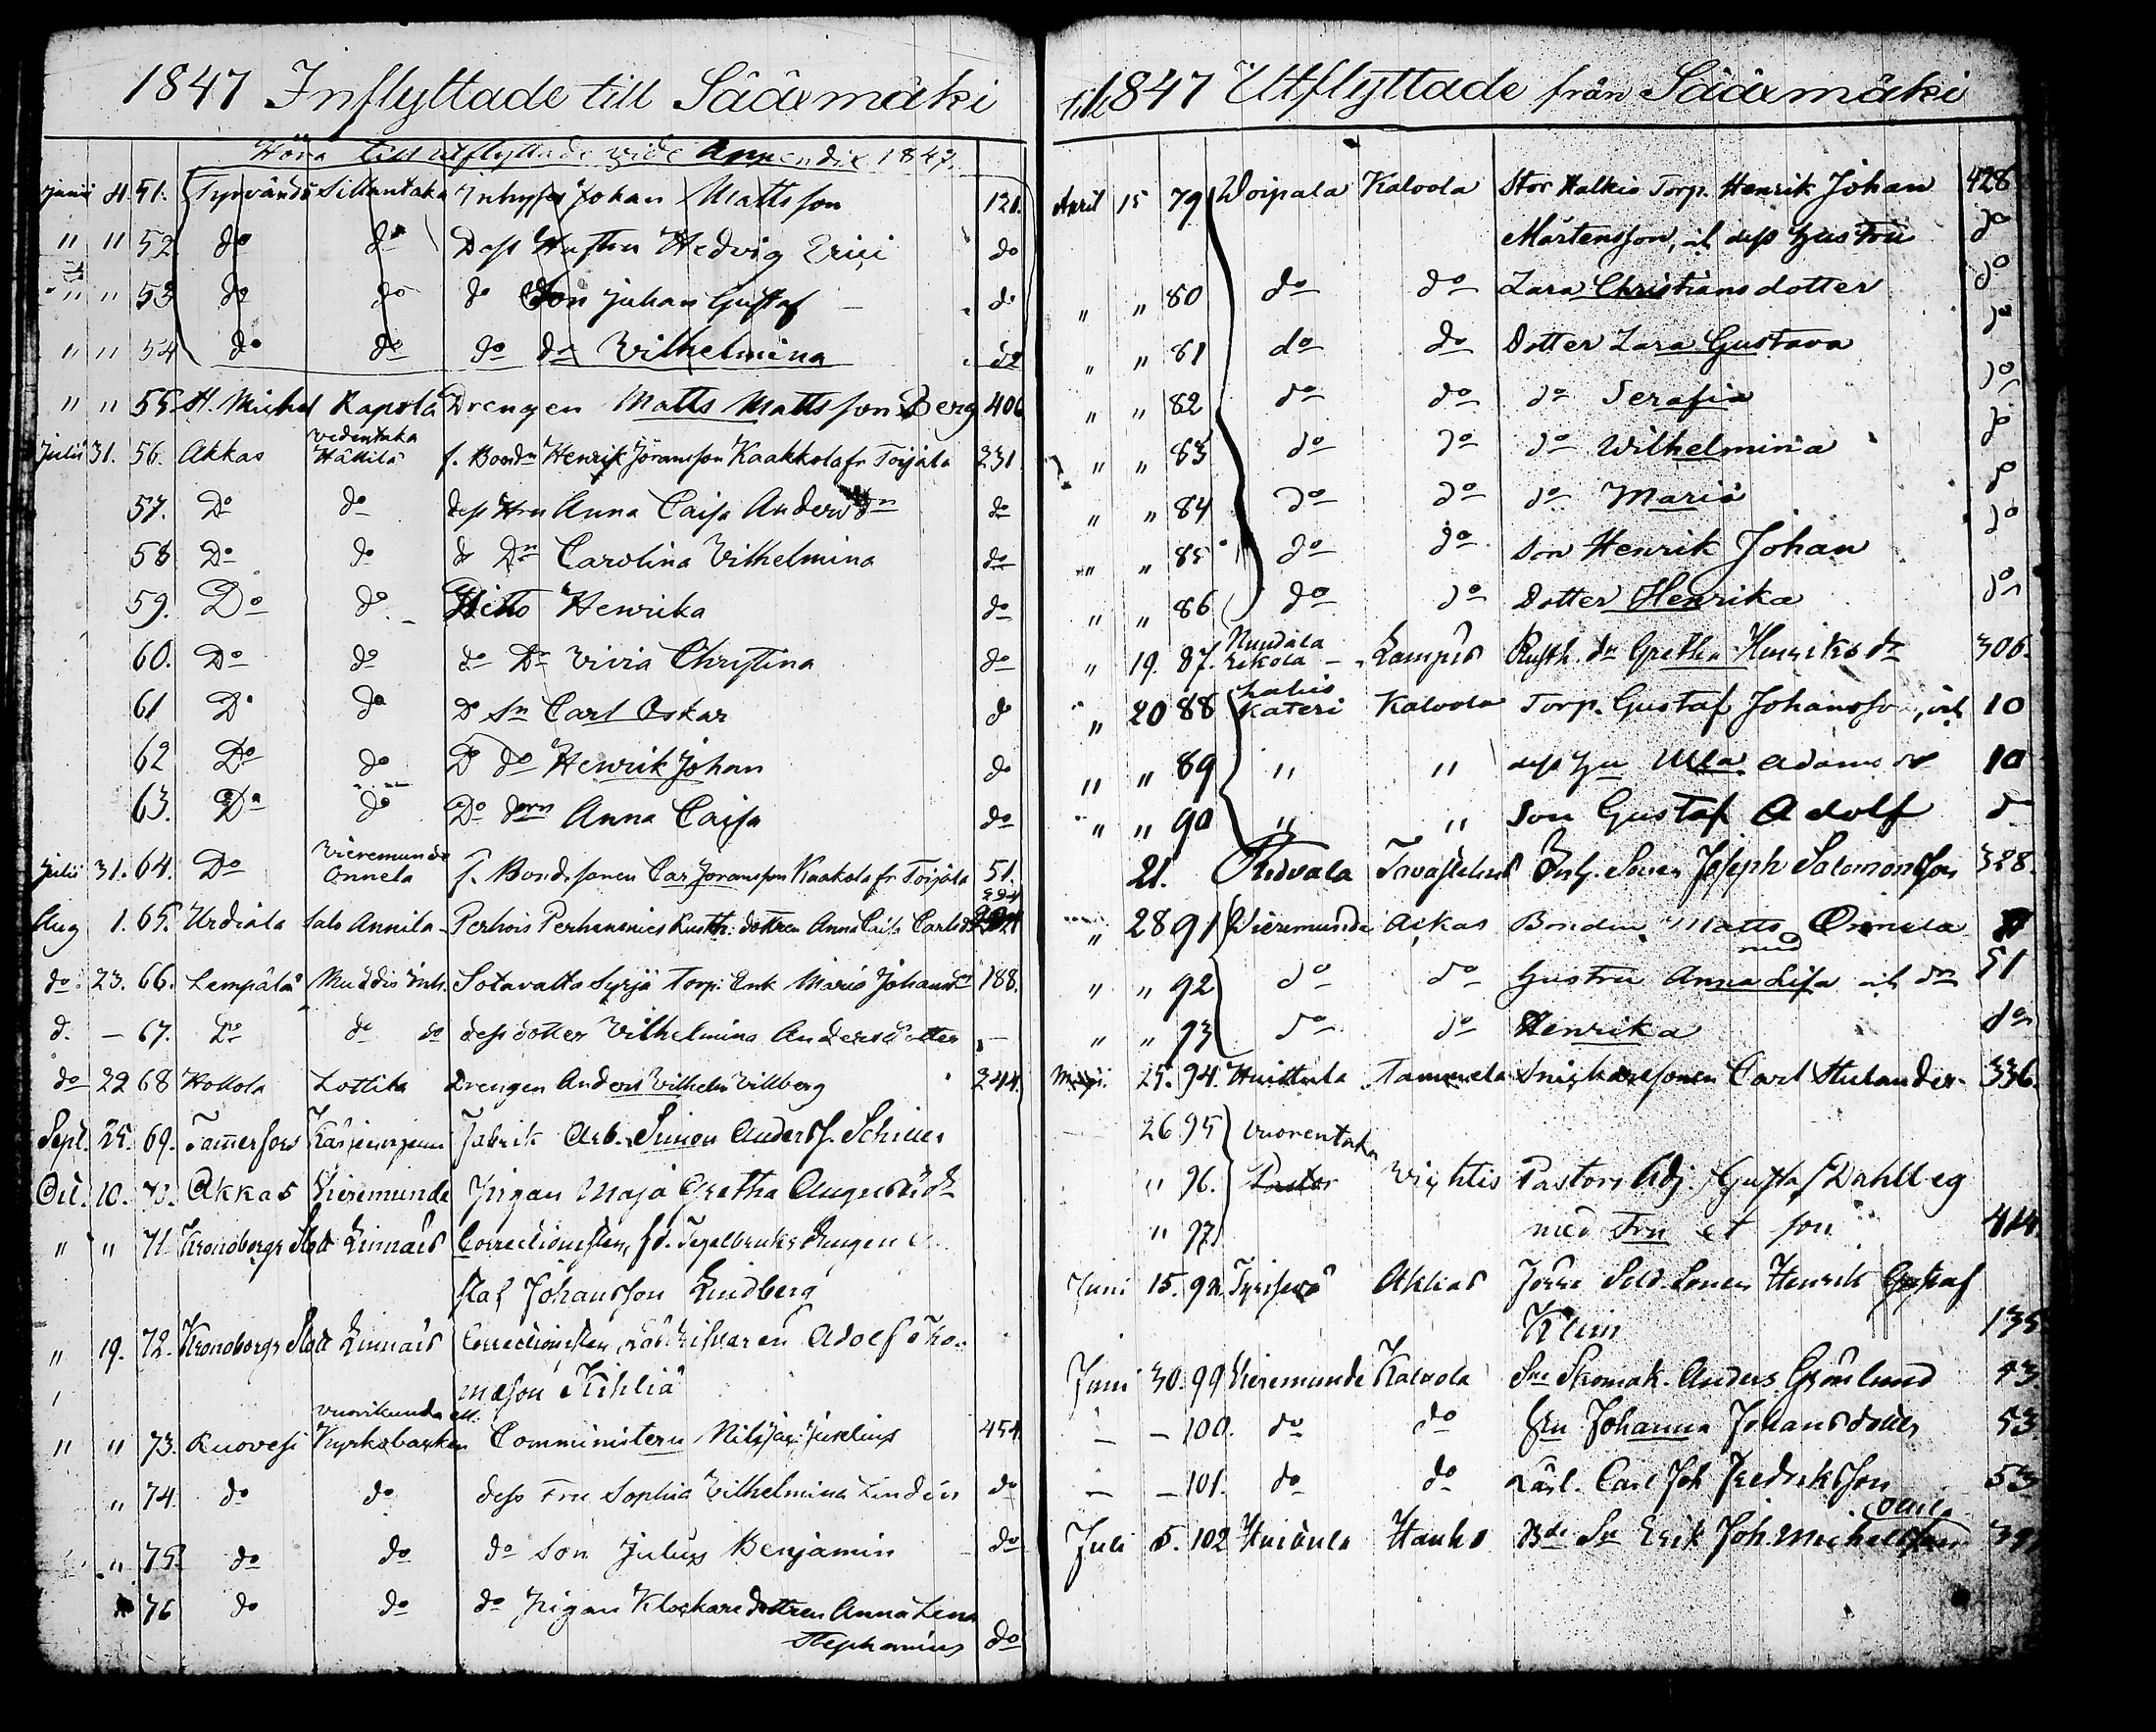 1847 Inflyttade till Sääxmäki
Höra till utflyttade vide Appendix 1847.
Junii 4. 51. Tyrvändö Sillantaka Inhyses Johan Mattsson 121.
" " 52 do do Dess Hustru Hedvig Erici do
" " 53 do do do Son Juhan Gustaf do
" " 54 do do do do Wilhelmina do
" " 55 St. Michel Rapola Drengen Matts Mattsson Berg 406
Julii 31. 56. Akkas Vedentaka Häkilä f. Bonden Henrik Jöransson Kaakkola fr Toijala 231
57. Do do dess Hru Anna Caisa Anders dr do
58 Do do do Dr Carolina Vilhelmina do
59. Do do Ditto Henrika do
60. Do do do Dr Vivia Christina do
61 Do do D Sn Carl Oskar do
62 Do do D do Henrik Johan do
63. Do do Do Anna Caisa do
Julii 31. 64. Do Vieremunde Onnela f. Bondesonen Car Joransson Kaakola fr Toijala 51.
Aug 1. 65. Urdiala Salo Annila Perhois Perhenenies Rusth: dottren Anna Caisa Carls dr
do 23. 66. Lempälä Muddis Inh. Sotavalta Syrjä Torp: Enk Maria Johansdr 188.
d. — 67. Do do do dess dotter Vilhelmina Andersdotter —
do 22 68 Hollola Lottila Drengen Anders Vilhelm Villberg 244.
Sept. 25. 69. Tamerfors Fabrik Arb. Simon Anders S.
Oct. 10. 70. Akkas Vieremunde Pigan Maja Gretha August dr
" " 71. Kronoborgs Slott Linnais Correctionisten, fd. Tegelbruks Drengen
staf Johansson Lindberg
" 19. 72. Kronoborgs Slott Linnais Correctionisten, Adolf Tho-
masson Kihliä
" " 73. Ruovesi Vuorikunda ell. Kyrkobacken Comministern Nils Jac. Jurelius 454
" 74 do do dess Fru Sophia Vilhelmina Lindén do
" 75 do do do Son Julius Benjamin do
76 do do do Pigan Klockare dottren Anna Lena
Stephanius do
till 1847 Utflyttade från Sääxmäki
April 15 79 Voipala Kalvola Stor Halkia Torp. Henrik Johan 428
Mårtensson, åt dess hustru do
" " 80 do do Zara Christiansdotter do
" " 81 do do Dotter Zara Gustava do
" " 82 do do do Serafia do
" " 83 do do do Wilhelmina do
" " 84 do do do Maria do
" " 85 do do Son Henrik Johan do
" " 86 do do Dotter Henrika do
" 19. 87. Kampis Rusth. dr Gretha Henriks dr 306.
" 20 88 Kateri Kalvola Torp. Gustaf Johansso 10
" " 89 " " dess hu Ulla Adams dr 10
" " 90 " " Son Gustaf Adolf do
21. Ridvala Tavastehus Inh. Sonen Joseph Salomonsson 328.
" 28 91 Vieremunde Akkas Bonden Matts Onnela
" " 92 do do med Hustru Anna Lisa 51
" " 93 do do Henrika do
Maji. 25. 94. Huittula Tammela Snickaresonen Carl Stulander 336.
26 95 Vuorentaka
" 96. Pastor Vichtis Pastors Adj. Gustaf Dahlberg
" 97 med Fru et son 414
Juni 15. 98. Akkas Sold. Sonen Henrik Gustaf
Klim 135
Juni 30. 99 Vieremunde Kalvola Sne Skomak. Anders Grönlund 43.
— 100. do do hru Johanna Johansdotter 53
— 101. do do Lärl. Carl Joh Fredriksson 53
Juli 5. 102 Hauho Bde Sn Erik Joh. Michelsson